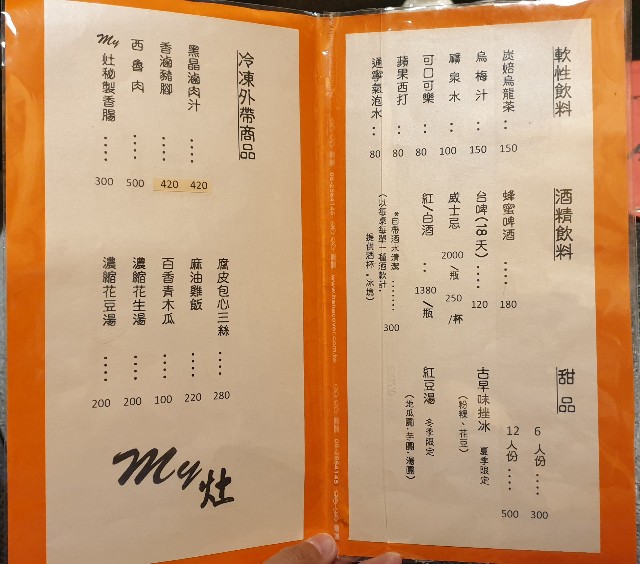 軟性飲料
炭焙烏龍茶‥150
烏梅汁‥150
礦泉水‥100
可口可樂‥80
蘋果西打‥80
通寧氣泡水‥80
酒精飲料
蜂蜜啤酒‥‥180
台啤(18天)‥‥120
威士忌 2000/瓶 250/杯
紅/白酒‥1380/瓶
*自帶酒水清潔‥‥‥300
(以每桌每單一種酒款計，
提供酒杯、冰塊)
甜品
6人份‥‥300
12人份‥‥500
古早味挫冰 夏季限定
(粉粿、花豆)
紅豆湯 冬季限定
(地瓜圓.芋圓.湯圓)
冷凍外帶商品
黑晶滷肉汁‥‥420
香滷豬腳‥‥420
西魯肉‥‥500
My灶秘製香腸‥‥300
腐皮包心三絲‥‥280
麻油雞飯‥‥220
百香青木瓜‥‥100
濃縮花生湯‥‥200
濃縮花豆湯‥‥200
My灶